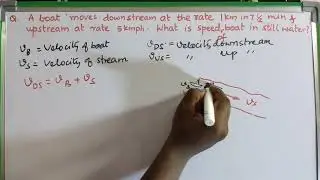 Q. A boat moves downstream at the rate 1km in 7½ min &
upstream at rate 5kmph. What is speed of boat in still water?
v_B = Velocity of boat
v_DS = velocity downstream
v_S = Velocity of stream
v_US = " up "
v_DS = v_B + v_S
v_S